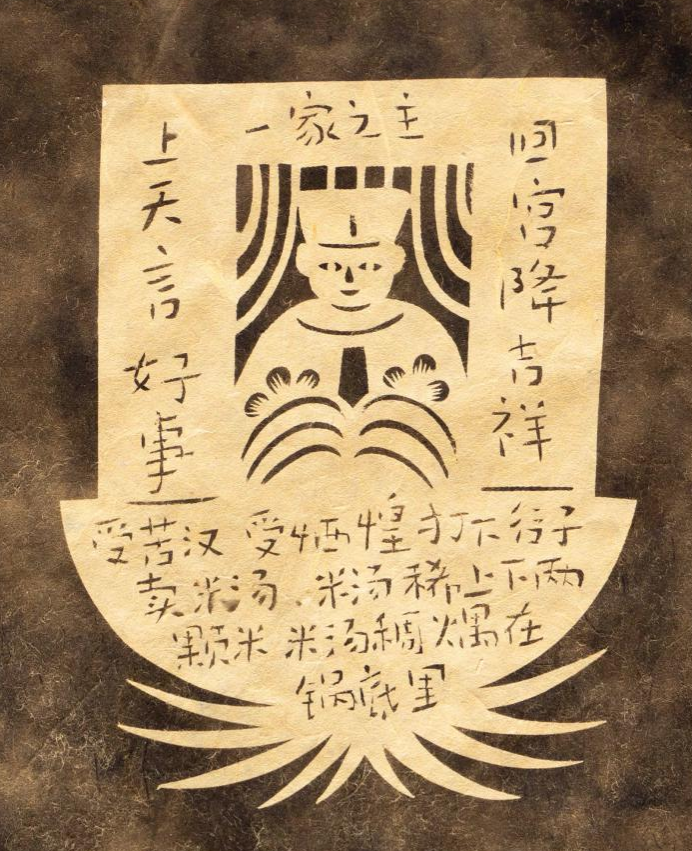 一家之主
上天言好事
回宫降吉祥
受苦汉 受恓惶 打下谷子
卖米汤 米汤稀 上下两
颗米 米汤稠 在
锅底里